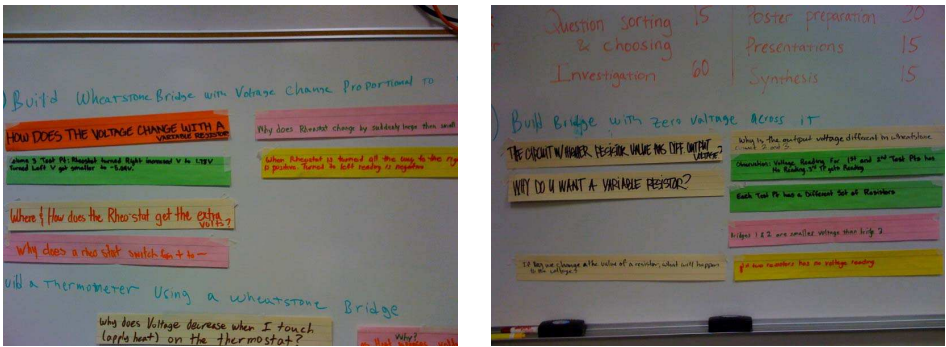 Build Wheatstone Bridge with Voltage Change Proportional to
HOW DOES THE VOLTAGE CHANGE WITH A
VARIABLE RESISTOR
Why does Rheostat change by suddenly large then small
Test Pt: Rheostat turned Right increased V to
Turned Left V got smaller to
When Rheostat is turned all the way to the
is positive. Turned to left reading is negative.
Where & How does the Rheo-stat get the extra
volts?
Why does a rheostat switch from + to -
a Thermometer Using a Wheatstone Bridge
Why does Voltage decrease when I touch
(apply heat) on the thermostat?
Why?
Question sorting 15
& choosing
Investigation 60
Poster preparation 20
Presentations 15
Synthesis 15
Build Bridge with zero voltage across it
THE CIRCUIT W/HIGHER RESISTOR VALUE HAS DIFF OUTPUT
VOLTAGE?
Why is the output voltage different in wheatstone
WHY DO U WANT A VARIABLE RESISTOR?
Observation: Voltage Reading For 1st and 2nd Test Pts has
No Reading. 3rd Pt gets Reading
Each Test Pt has a Different Set of Resistors
Bridges 1 & 2 are smaller voltage than bridge 3
If they we change the value of a resistor, what will happen
to the voltage?
two resistors has no voltage reading